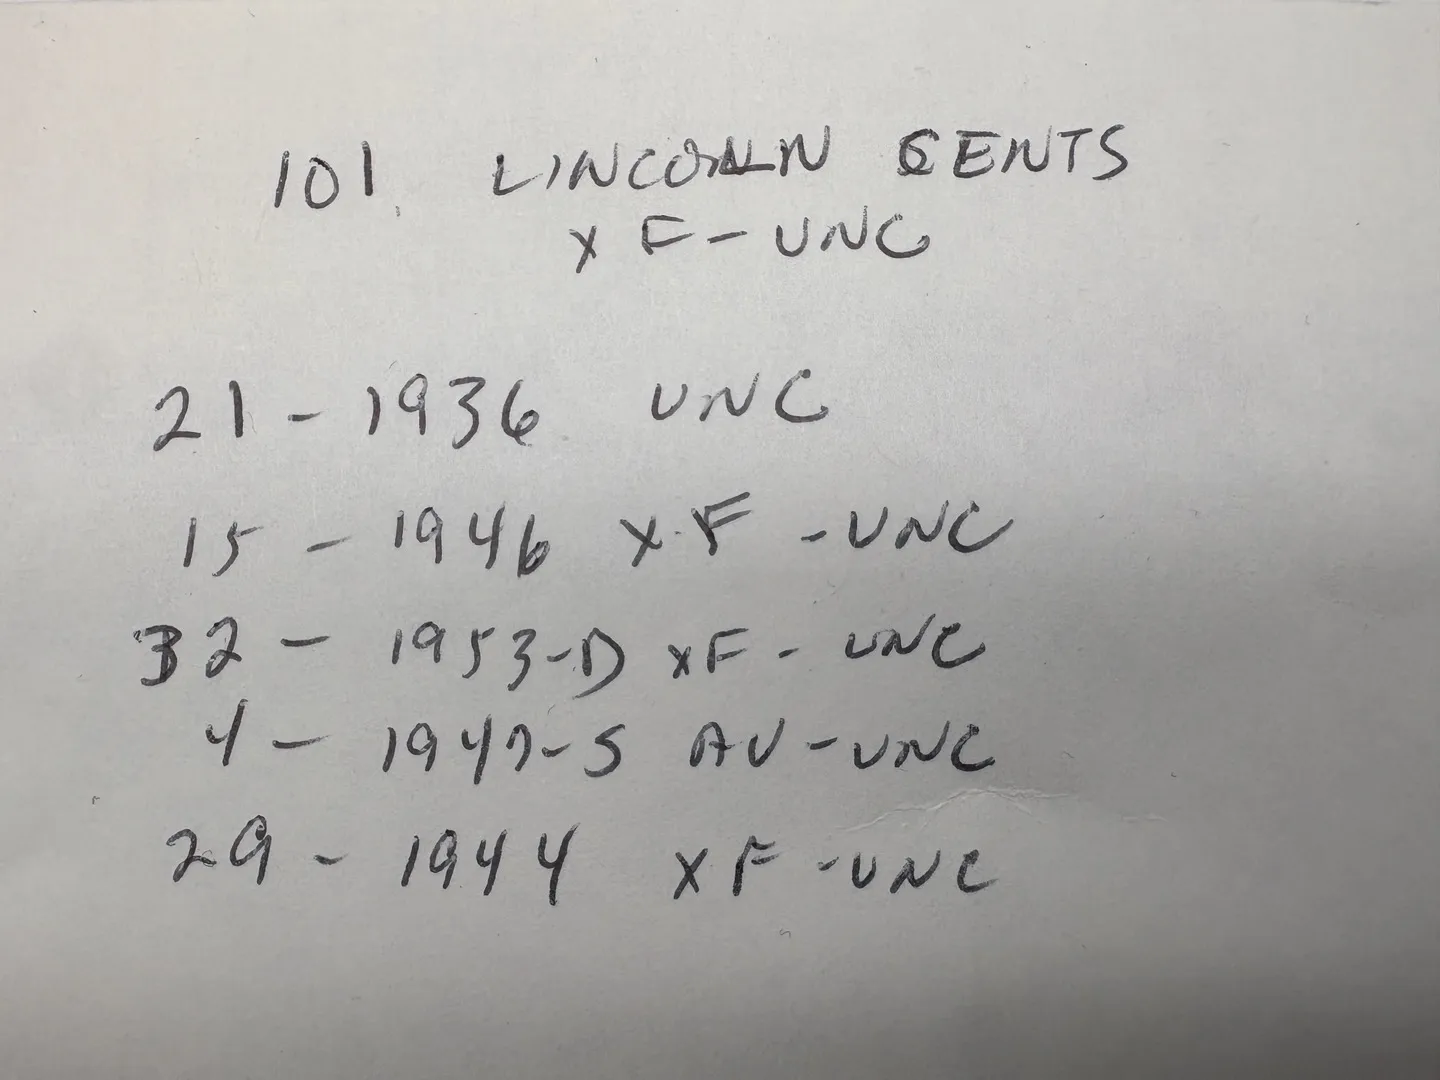 101 LINCOLN CENTS
XF-UNC
21-1936 UNC
15-1946 XF-UNC
32-1953-D XF-UNC
4-1947-S AU-UNC
29-1944 XF-UNC